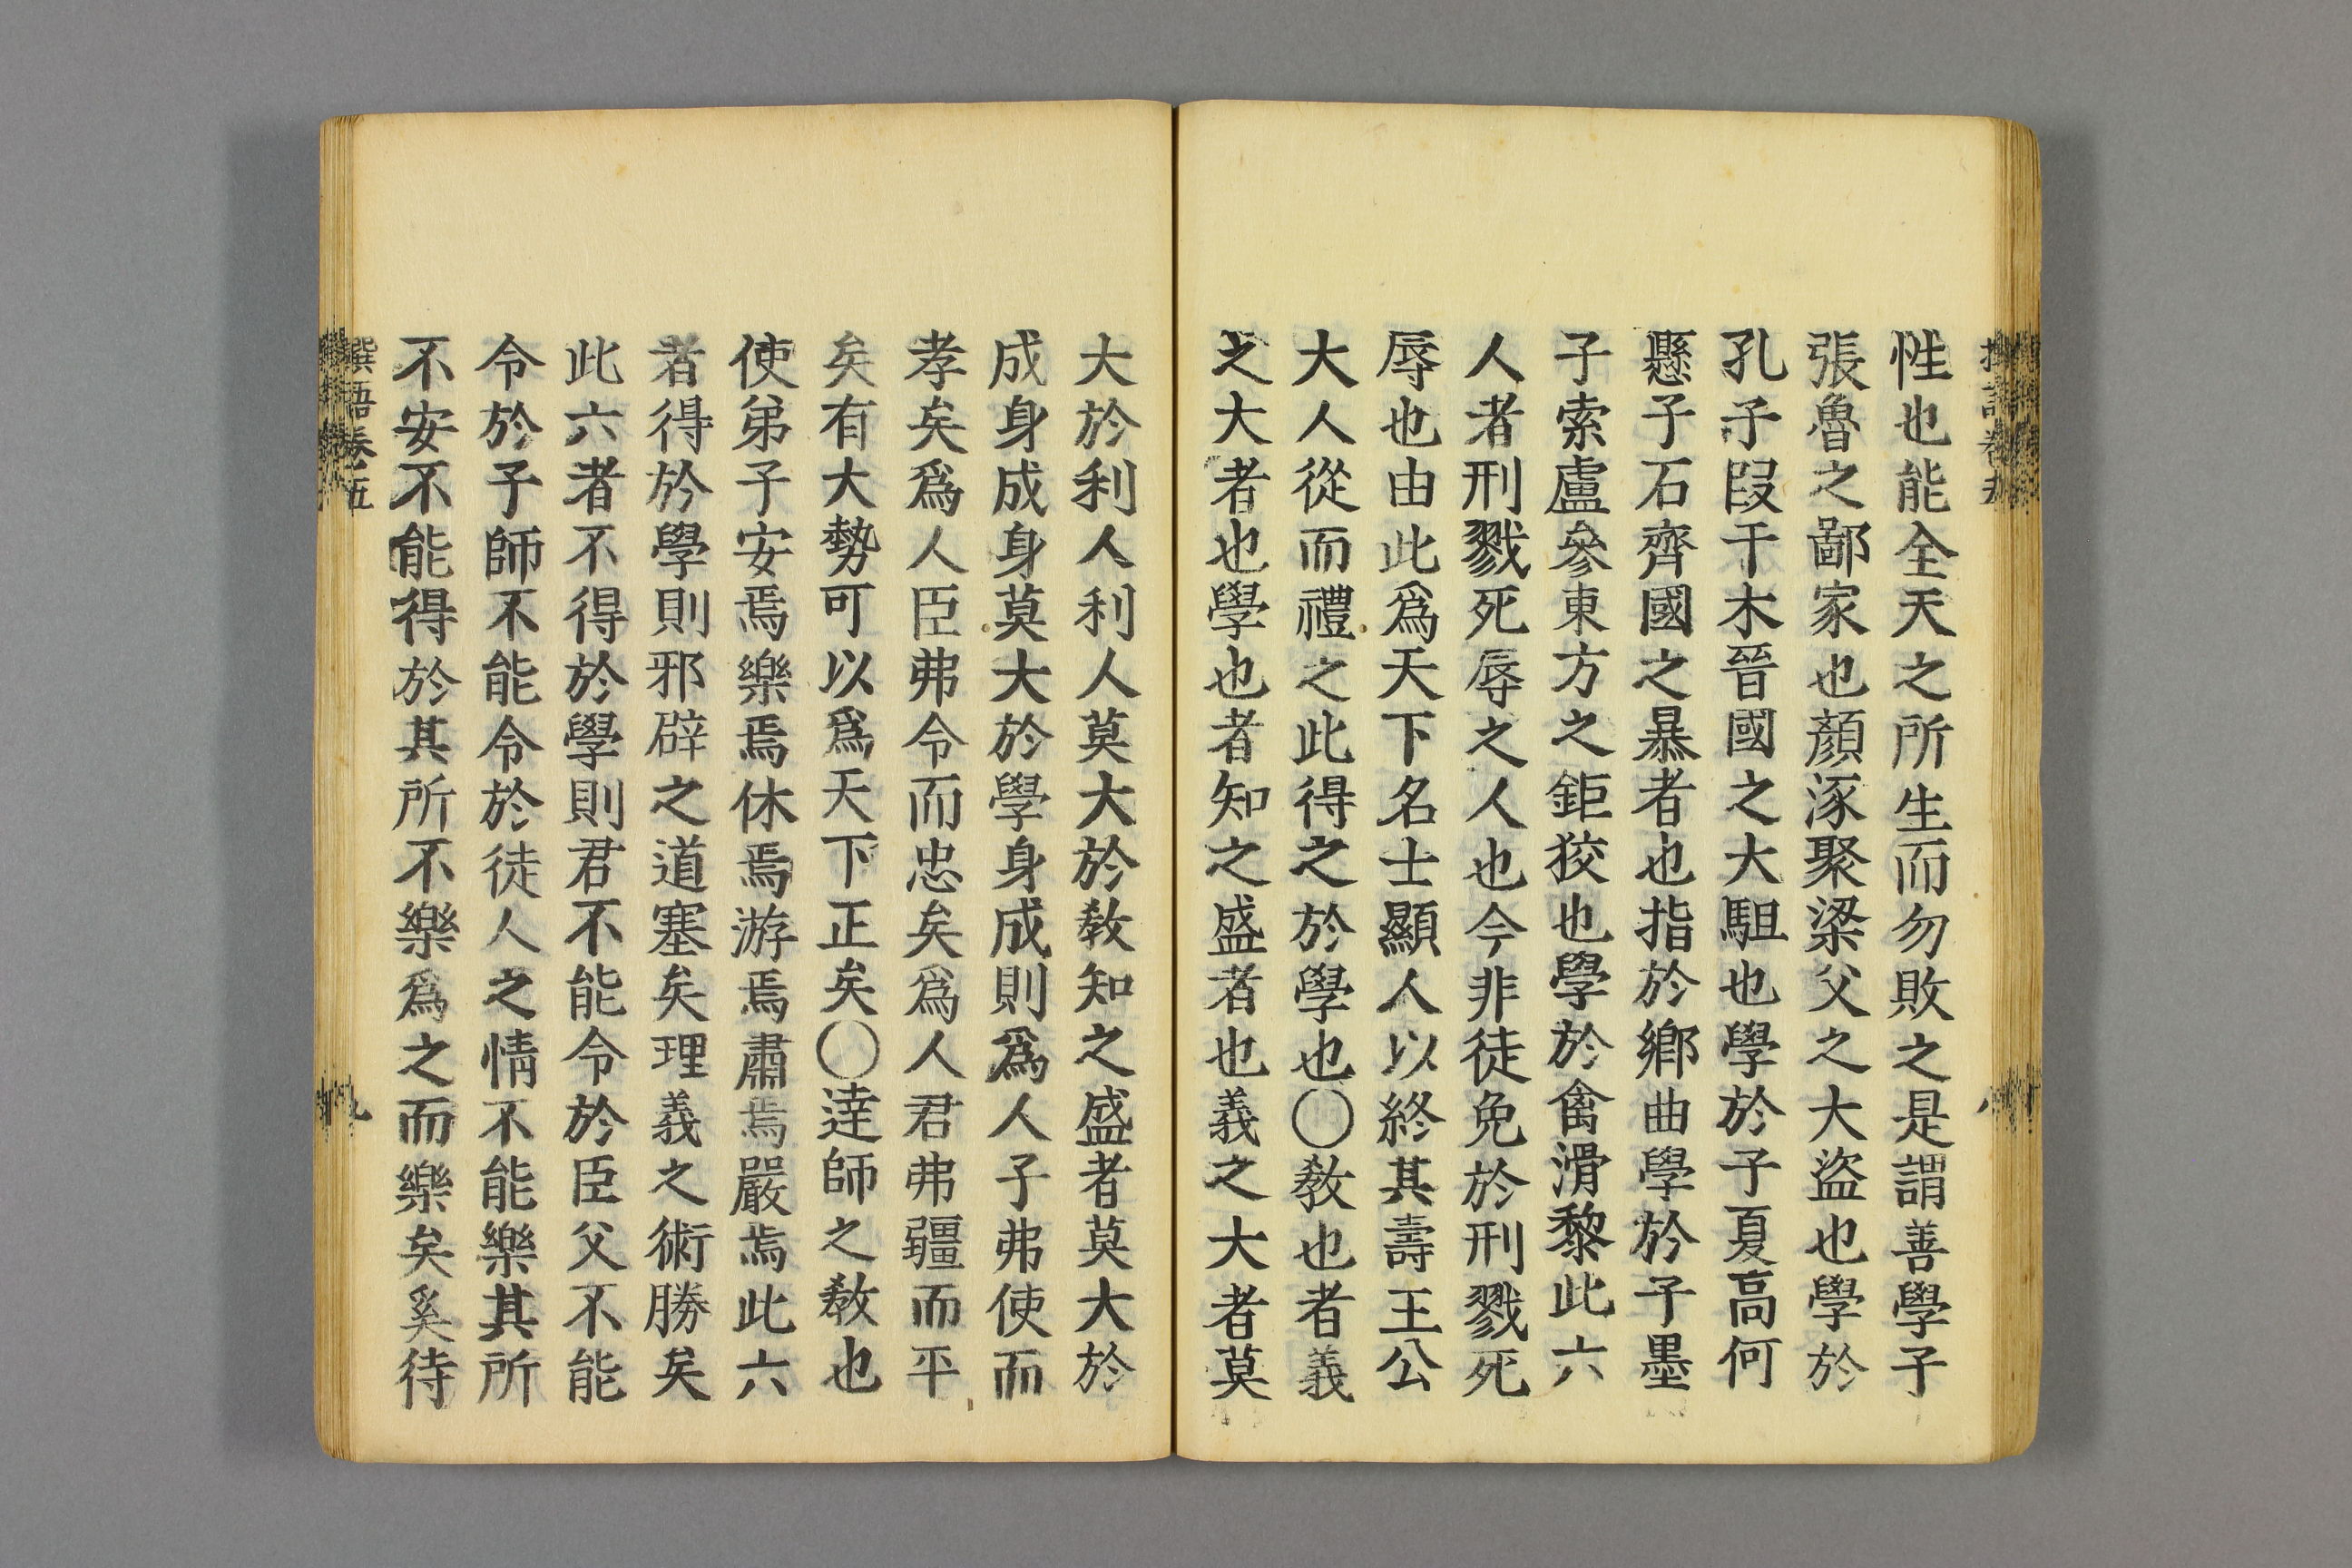 性也能全天之所生而勿敗之是謂善學子
張魯之鄙家也顏涿聚梁父之大盜也學於
孔子段干木晉國之大駔也學於子夏高何
懸子石齊國之暴者也指於鄉曲學於子墨
子索盧參東方之鉅狡也學於禽滑黎此六
人者刑戮死辱之人也今非徒免於刑戮死
辱也由此爲天下名士顯人以終其壽王公
大人從而禮之此得之於學也〇教也者義
之大者也學也者知之盛者也義之大者莫
大於利人利人莫大於教知之盛者莫大於
成身成身莫大於學身成則爲人子弗使而
孝矣爲人臣弗令而忠矣爲人君弗疆而平
矣有大勢可以爲天下正矣〇達師之教也
使弟子安焉樂焉休焉游焉肅焉嚴焉此六
者得於學則邪辟之道塞矣理義之術勝矣
此六者不得於學則君不能令於臣父不能
令於子師不能令於徒人之情不能樂其所
不安不能得於其所不樂爲之而樂矣奚待
撰語卷五
九